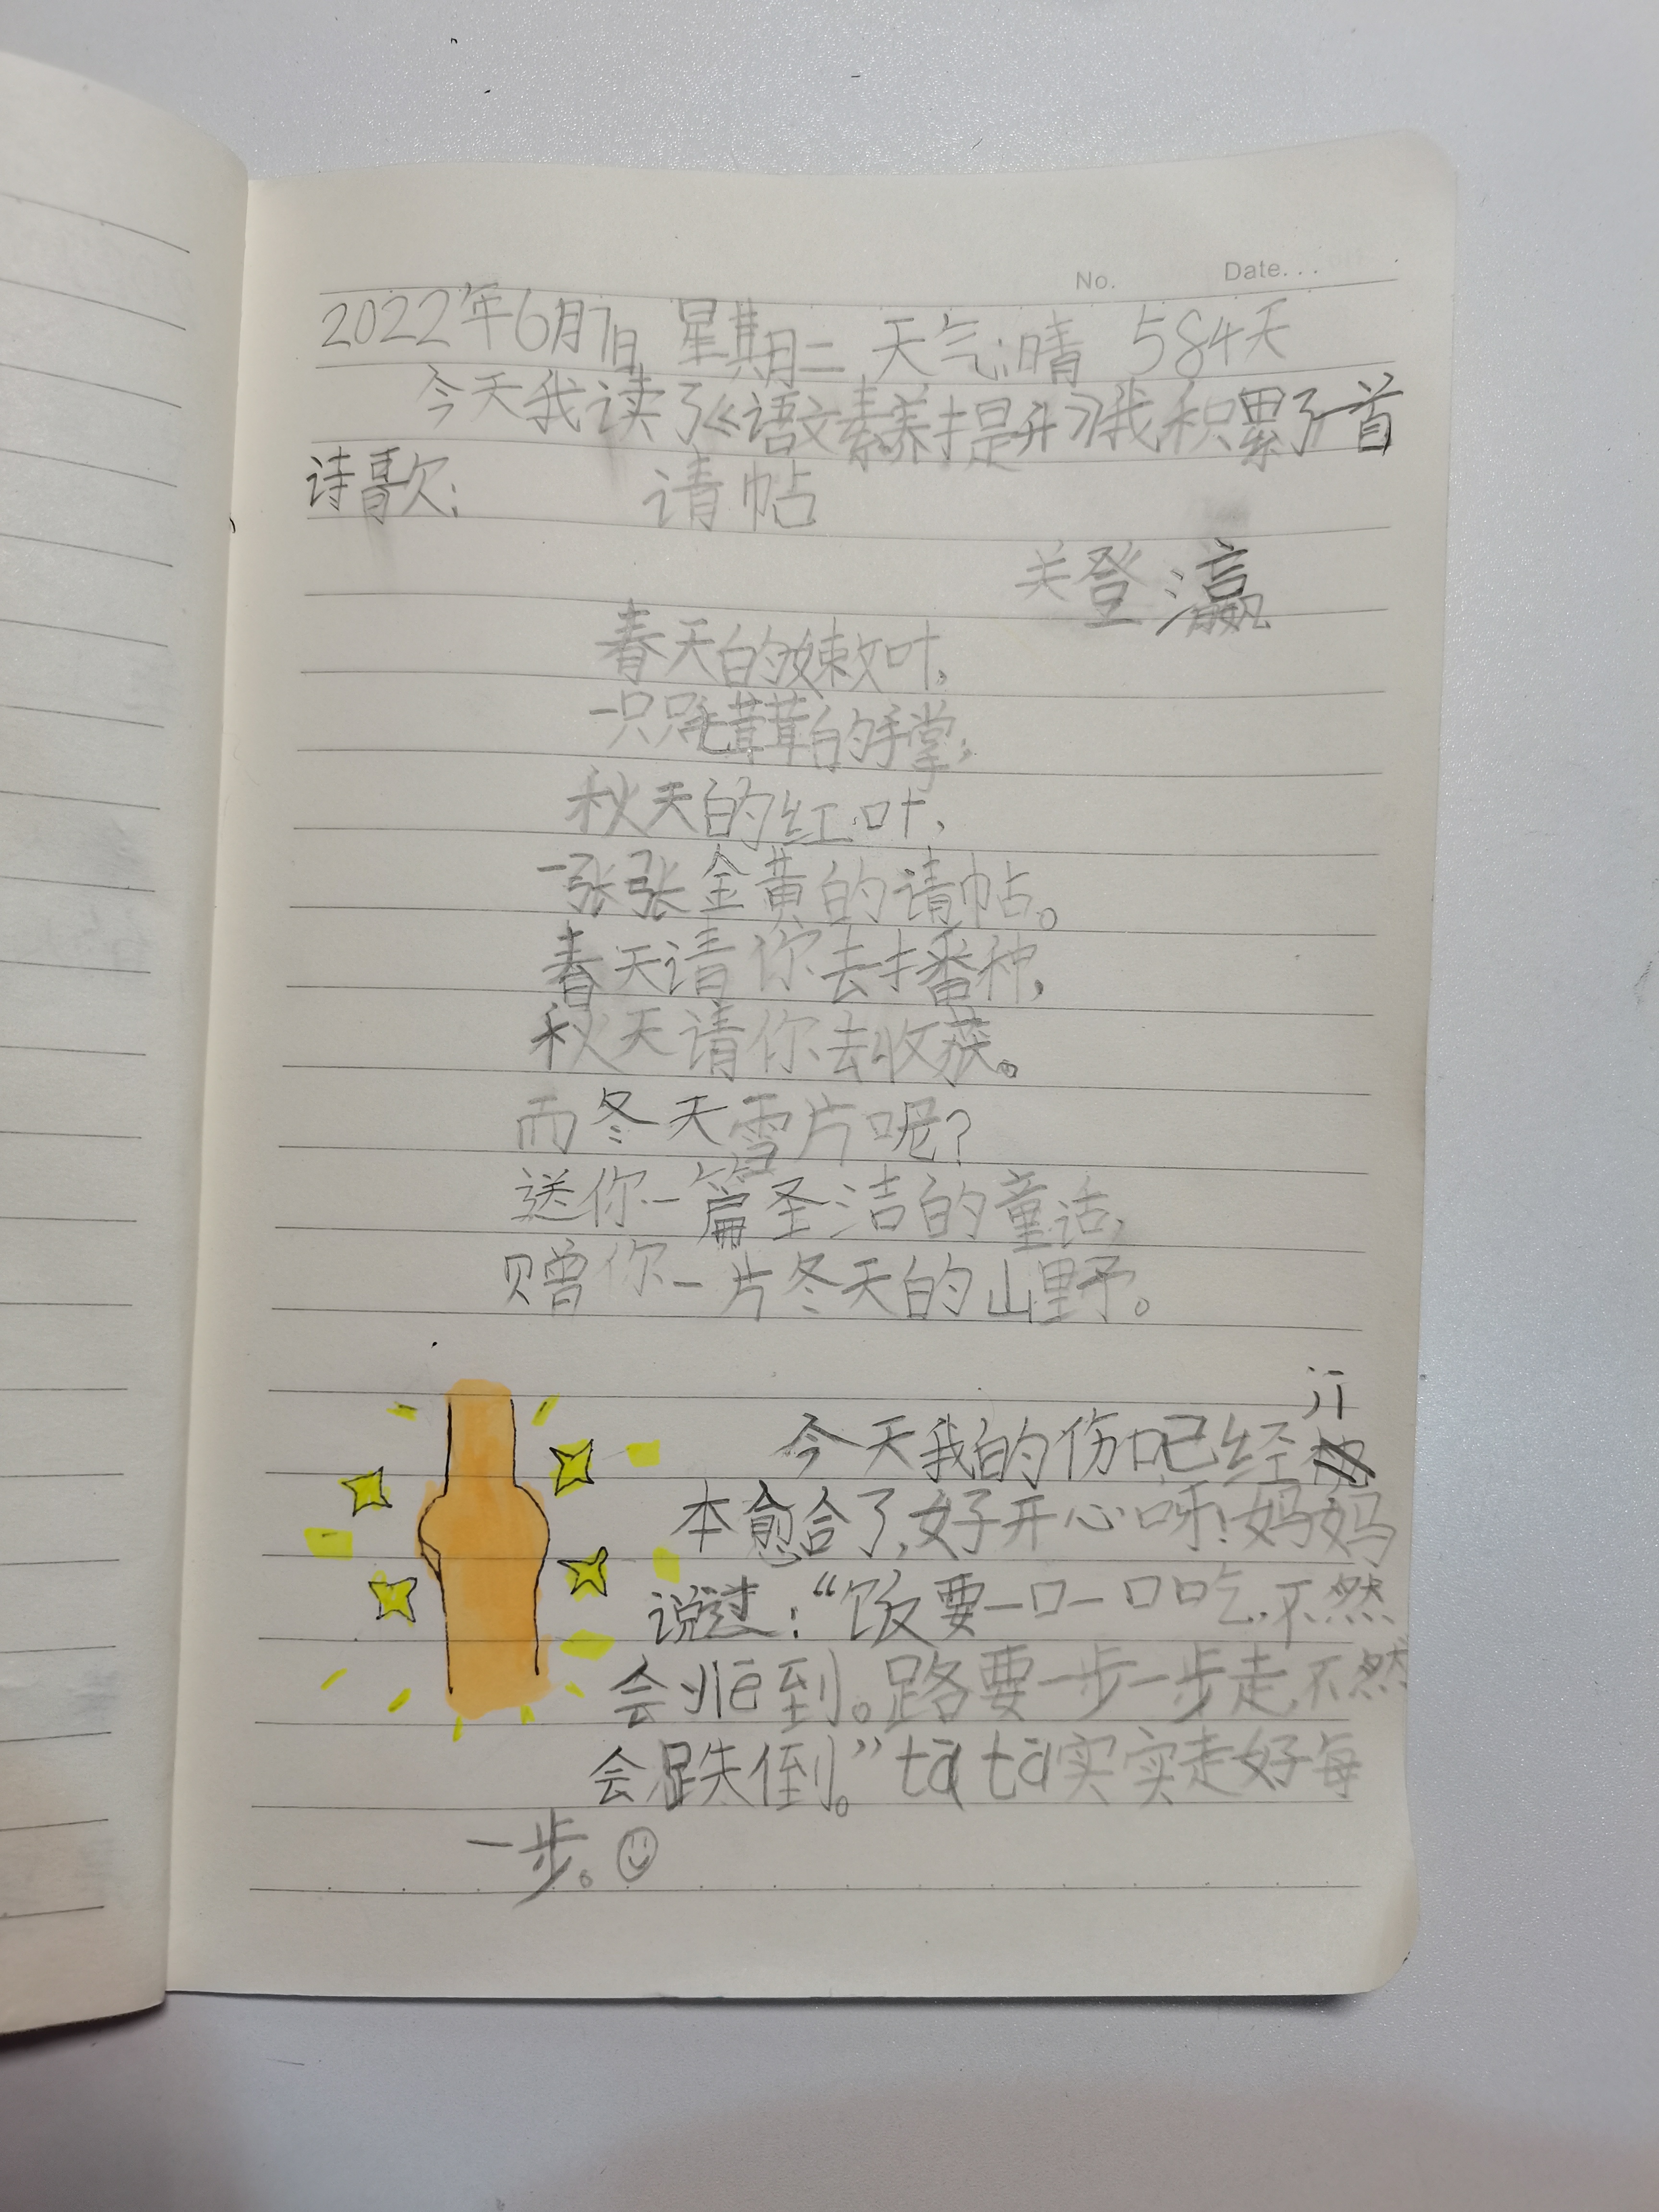 No. Date...
2022年6月7日 星期二 天气:晴 584天
今天我读了《语文素养提升》我积累了一首
诗歌: 请帖
关登瀛
春天的嫩叶,
一只只毛茸茸的手掌;
秋天的红叶,
一张张金黄的请帖。
春天请你去播种,
秋天请你去收获。
而冬天雪片呢?
送你一篇圣洁的童话,
赠你一片冬天的山野。
jī
今天我的伤口已经
本愈合了,好开心呀!妈妈
说过:“饭要一口一口吃,不然
会yē到。路要一步一步走,不然
会跌倒。”tā tā实实走好每
一步。